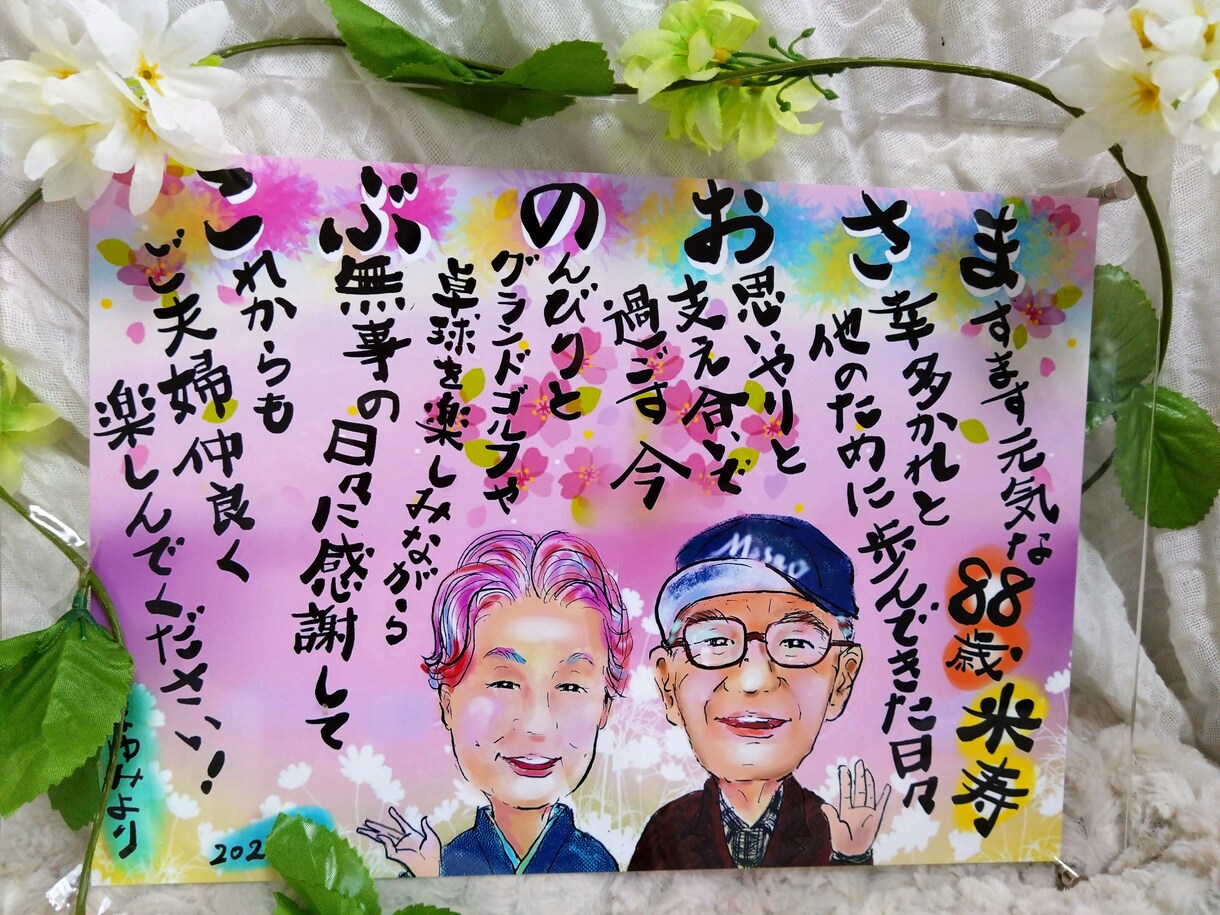 ますます元気な88歳米寿
幸多かれと
他のために歩んできた日々
思いやりと
支え合いで
過ごす今
のんびりと
グランドゴルフや
卓球を楽しみながら
ぶ無事の日々に感謝して
これからも
ご夫婦仲良く
楽しんでください!
ゆみより
202
さ
お